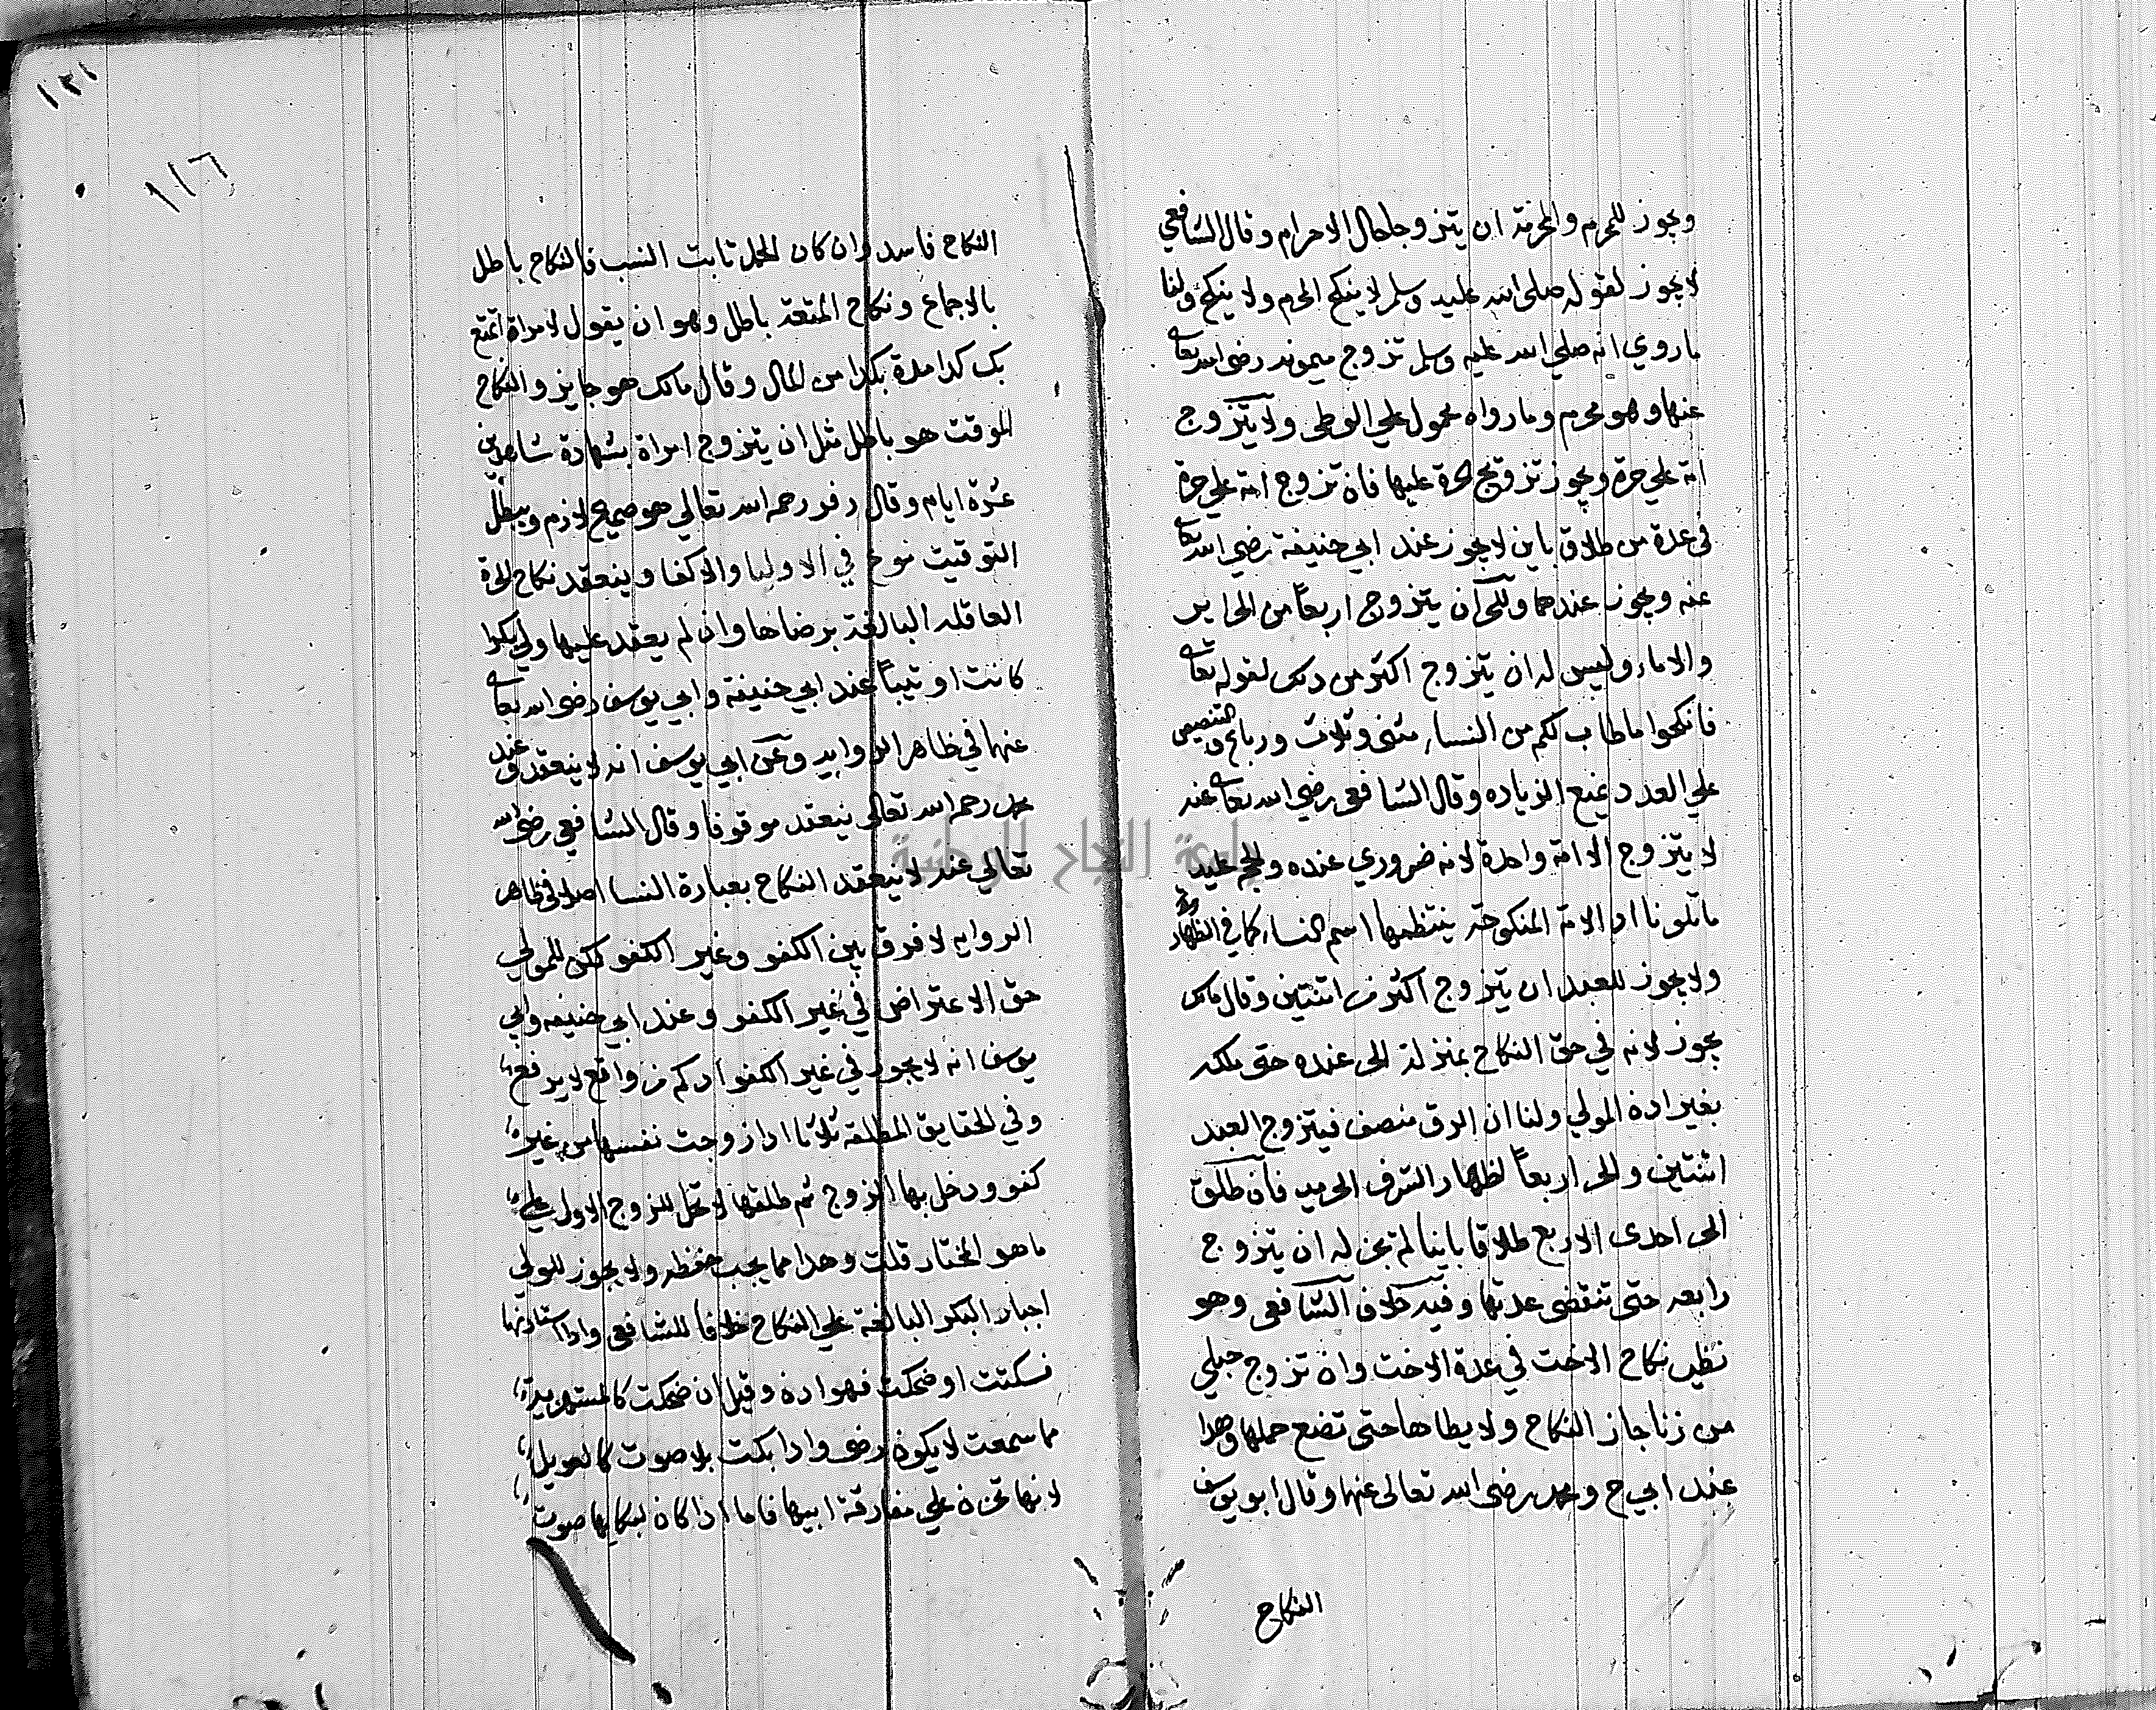 ويجوز للمحرم والمحرمة ان يتزوجا حال الاحرام وقال الشافعي
لا يجوز لقوله صلى الله عليه وسلم لا ينكح المحرم ولا ينكح ولنا
ما روي انه صلي الله عليه وسلم تزوج ميمونه رضى الله تعالى
عنها وهو محرم وما رواه محمول علي الوطى ولا يتزوج
امة علي حرة ويجوز تزويج الحرة عليها فان تزوج امة علي حرة
في عدة من طلاق باين لا يجوز عند ابي حنيفة رضي الله تعالى
عنه ويجوز عندهما وللحر ان يتزوج اربعاً من الحراير
والاماء وليس له ان يتزوج اكثر من ذلك لقوله تعالى
فانكحوا ما طاب لكم من النساء مثنى وثلاث ورباع والتنصيص
علي العدد يمنع الزياده وقال الشافعى رضي الله تعالى عنه
لا يتزوج الا امة واحدة لانه ضروري عنده والحجة عليه
ما تلونا اذ الامة المنكوحة ينتظمها اسم النساء كما في الظهار
ولا يجوز للعبد ان يتزوج اكثر من اثنتين وقال مالك
يجوز لانه في حق النكاح بمنزلة الحر عنده حتى ملكه
بغير اذن المولي ولنا ان الرق منصف فيتزوج العبد
اثنتين والحر اربعاً لظهار الشرف الحرية فان طلق
الحر احدى الاربع طلاقا باينا لم يجز له ان يتزوج
رابعه حتى تنقضى عدتها وفيه خلاف الشافعى وهو
نظير نكاح الاخت في عدة الاخت وان تزوج حبلي
من زنا جاز النكاح ولا يطاها حتى تضع حملها وهذا
عند ابي ح ومحمد رضى الله تعالى عنها وقال ابو يوسف
النكاح
١٢١
١١٦
النكاح فاسد وان كان الحمل ثابت النسب فالنكاح باطل
بالاجماع ونكاح المتعة باطل وهو ان يقول لامراة اتمتع
بك كذا مدة بكذا من المال وقال مالك هو جايز والنكاح
الموقت هو باطل مثل ان يتزوج امراة بشهادة شاهدين
عشرة ايام وقال زفر رحمه الله تعالي هو صحيح لازم ويبطل
التوقيت نوع في الاوليا والاكفا وينعقد نكاح الحرة
العاقله البالغة برضاها وان لم يعقد عليها ولي بكرا
كانت او ثيباً عند ابي حنيفة وابي يوسف رضى الله تعالى
عنهما في ظاهر الروايه وعن ابي يوسف انه لا ينعقد وعند
محمد رحمه الله تعالى ينعقد موقوفا وقال الشافعي رضى الله
تعالي عنه لا ينعقد النكاح بعبارة النسا اصلا في ظاهر
الروايه لا فرق بين الكفو وغير الكفو لكن للمولي
حق الاعتراض في غير الكفو وعند ابي حنيفه وابي
يوسف انه لا يجوز في غير الكفو اذ كم من واقع لا يرفع
وفي الحقايق المطلقة ثلاثا اذا زوجت نفسها من غير
كفو ودخل بها الزوج ثم طلقها لا تحل للزوج الاول علي
ما هو المختار قلت وهذا مما يجب حفظه ولا يجوز للولي
اجبار البكر البالغة علي النكاح خلافا للشافعى واذا استاذنها
فسكتت او ضحكت فهو اذن وقيل ان ضحكت كالمستهزية
مما سمعت لا يكون رضى واذا بكت بلا صوت كالعويل
لانها تحزن علي مفارقة ابيها فاما اذا كان لبكايها صوت
جامعة النجاح الوطنية